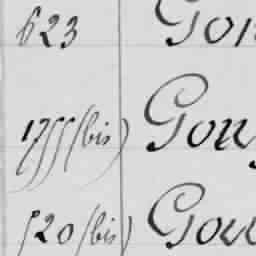 623 Gon
1755 (bis) Gou
520 (bis) Gou